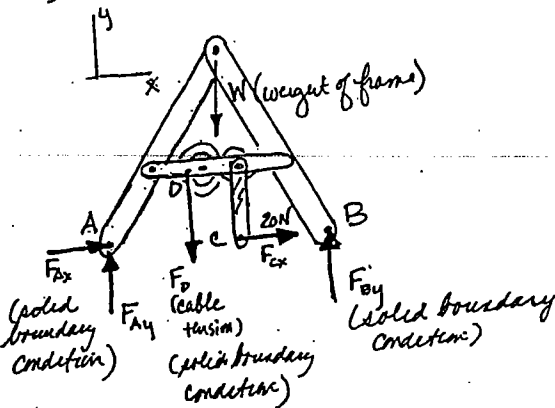 y
x
W (weight of frame)
D
A
B
C
20N
F_Ax
F_Ay
F_D
F_Cx
F_By
(solid
boundary
condition)
(cable
tension)
(solid boundary
condition)
(solid boundary
condition)